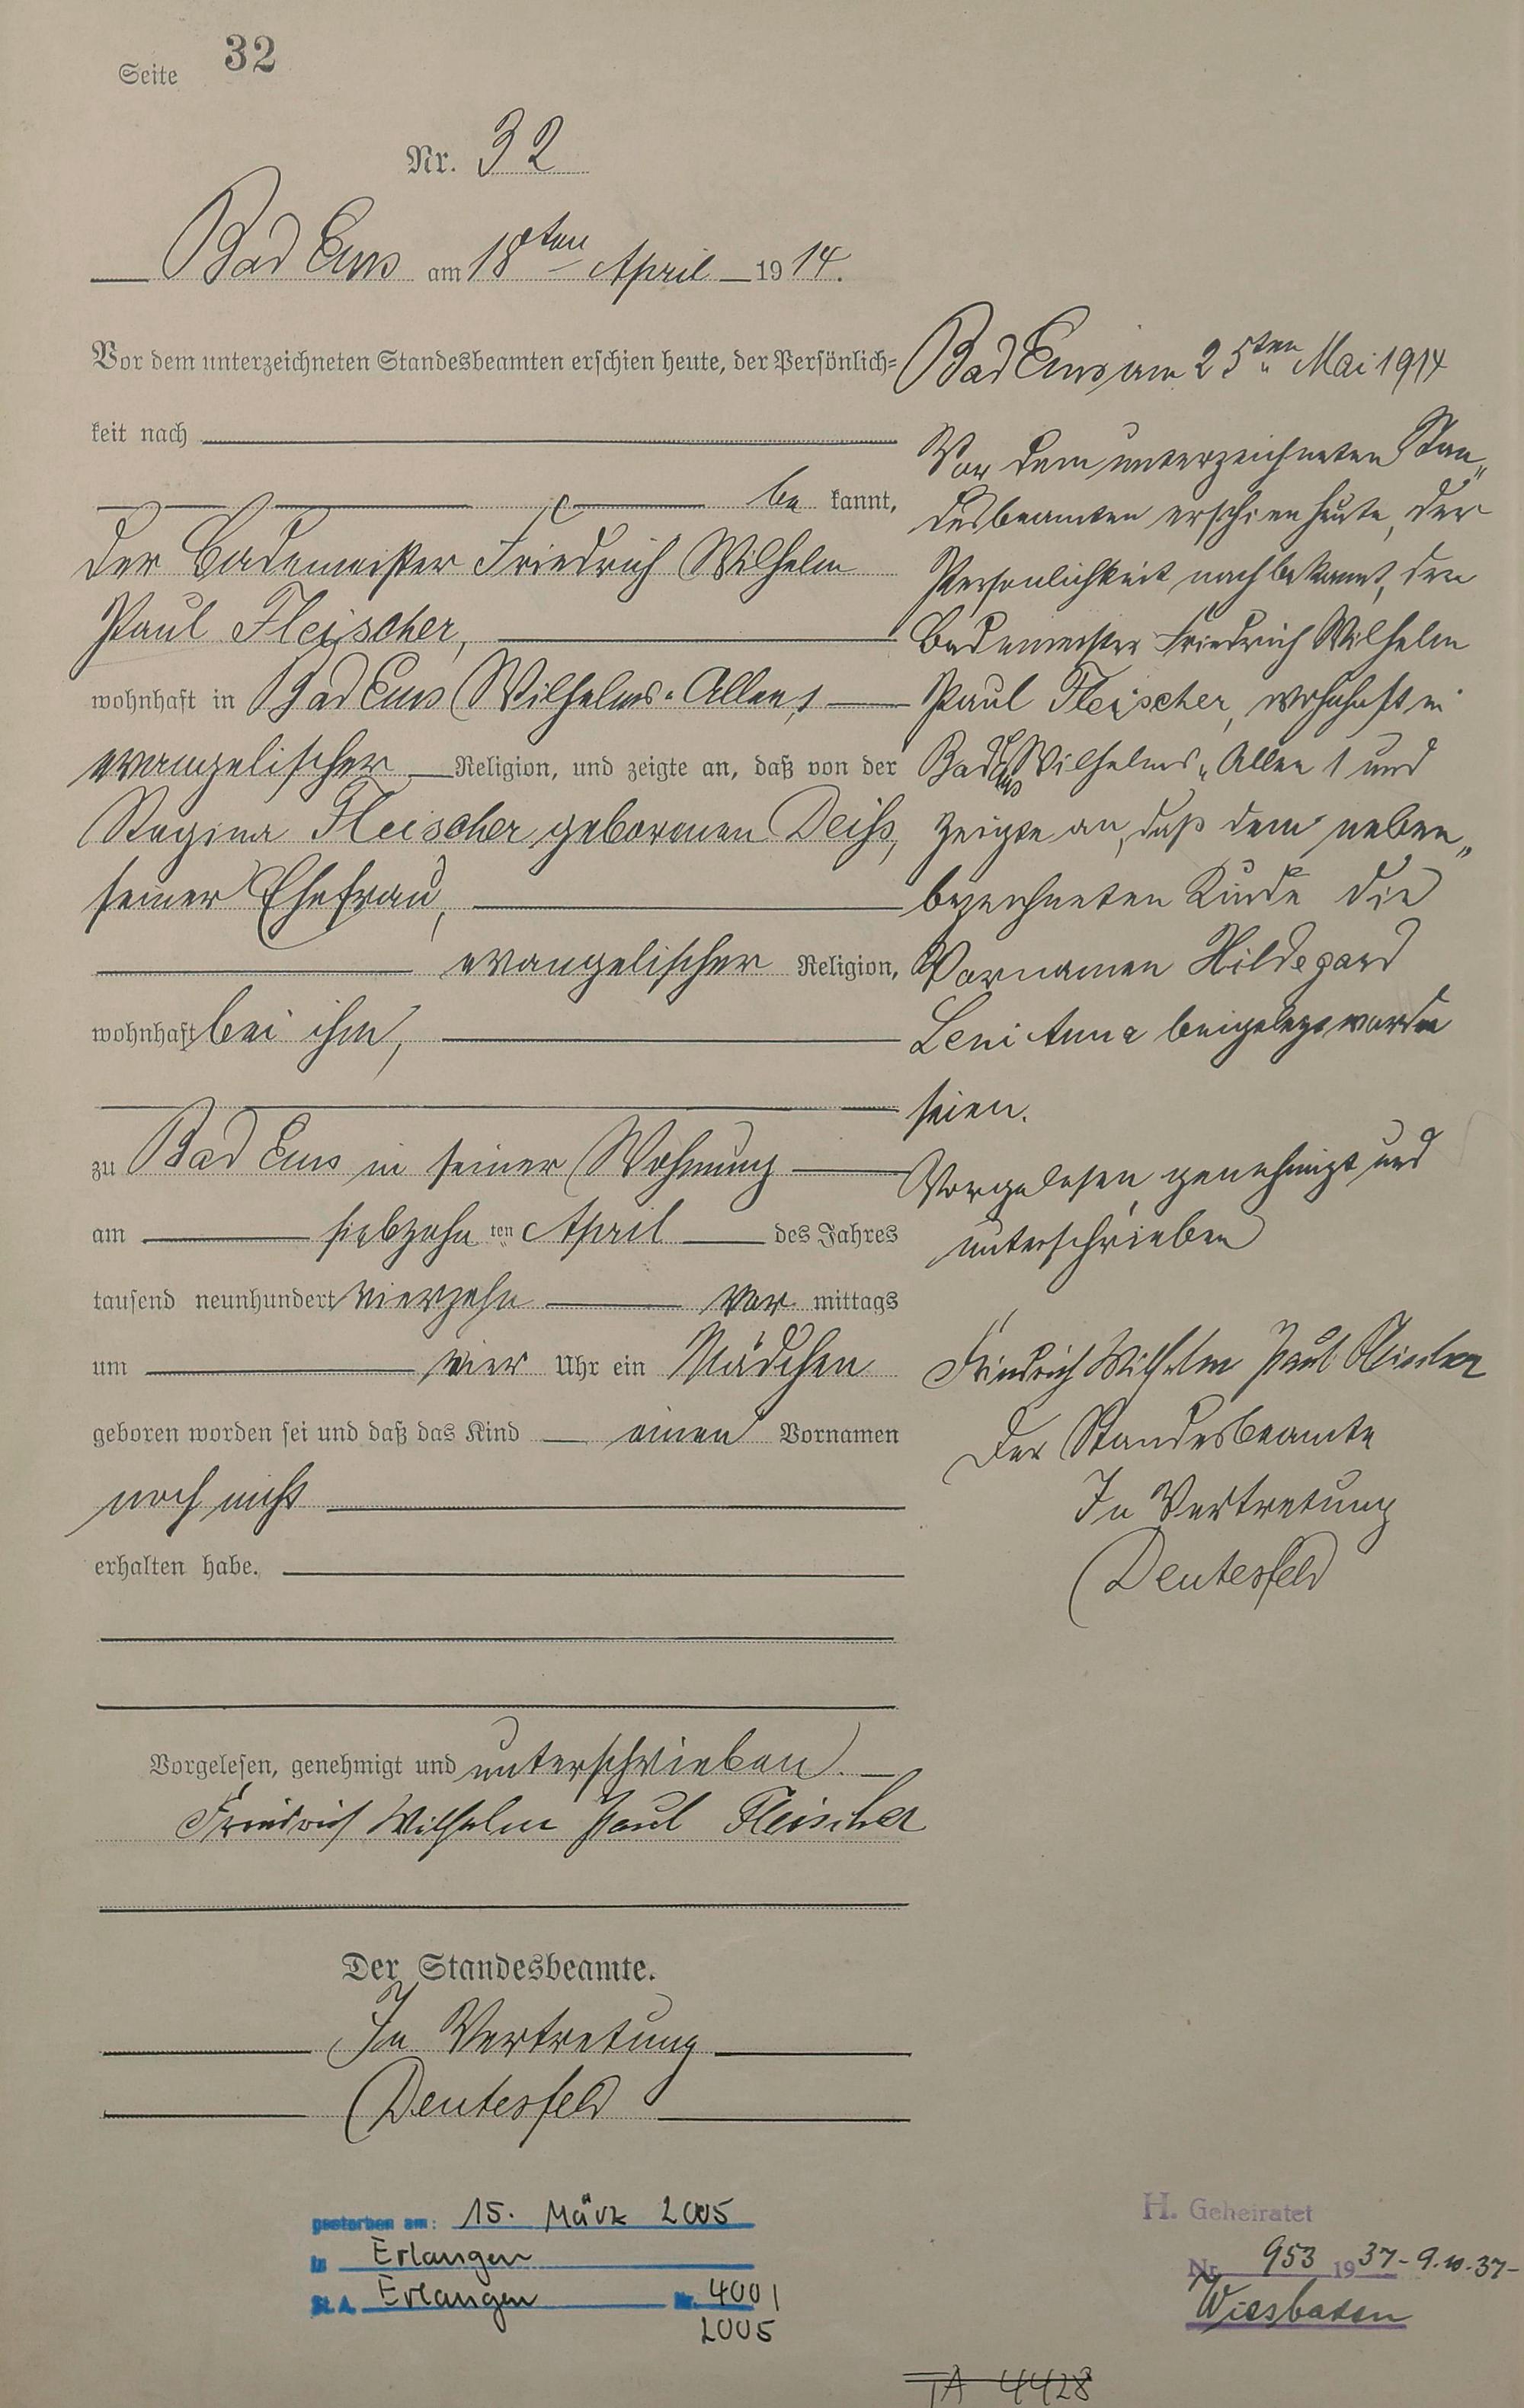 Seite 32
Nr. 32
Bad Ems am 18ten April 1914.
Vor dem unterzeichneten Standesbeamten erschien heute, der Persönlich-
keit nach
be kannt,
der Bademeister Friedrich Wilhelm
Paul Fleischer,
wohnhaft in Bad Ems Wilhelms-Allee 1
evangelischer Religion, und zeigte an, daß von der
Regina Fleischer geborenen Deiß,
seiner Ehefrau,
evangelischer Religion,
wohnhaft bei ihm,
zu Bad Ems in seiner Wohnung
am siebzehn ten April des Jahres
tausend neunhundert vierzehn Vor mittags
um vier Uhr ein Mädchen
geboren worden sei und daß das Kind einen Vornamen
noch nicht
erhalten habe.
Vorgelesen, genehmigt und unterschrieben.
Friedrich Wilhelm Paul Fleischer
Der Standesbeamte.
In Vertretung
Deutesfeld
Bad Ems am 25ten Mai 1914
Vor dem unterzeichneten Stan„
desbeamten erschien heute, der
Persönlichkeit nach bekannt, der
Bademeister Friedrich Wilhelm
Paul Fleischer, wohnhaft in
Bad Ems Wilhelms„Allee 1 und
zeigte an, daß dem neben„
bezeichneten Kinde die
Vornamen Hildegard
Leni Anna beigelegt worden
seien.
Vorgelesen genehmigt und
unterschrieben
Friedrich Wilhelm Paul Fleischer
Der Standesbeamte
In Vertretung
Deutesfeld
gestorben am: 15. März 2005
in Erlangen
St.A. Erlangen Nr. 4001
2005
H. Geheiratet
Nr. 953 1937 - 9.10.37 -
Wiesbaden
TA 4428